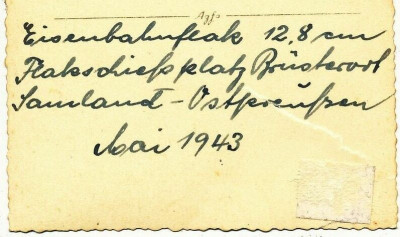 Agfa
Eisenbahnflak 12,8 cm
Flakschießplatz Brüsterort
Samland - Ostpreußen
Mai 1943